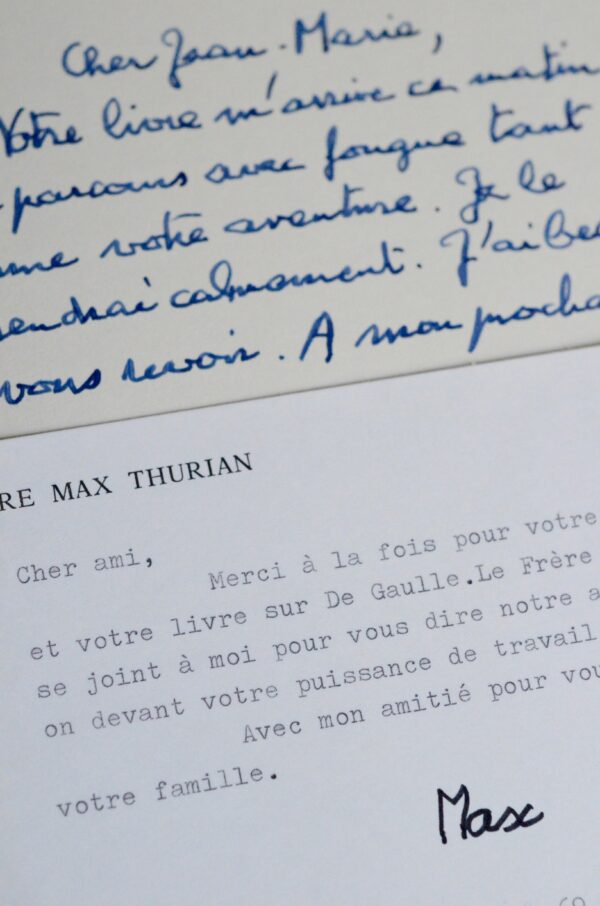 Cher Jean-Marie,
Votre livre m'arrive ce matin
parcours avec fougue tant
votre aventure. Je le
calmement. J'ai
vous revoir. A mon
RE MAX THURIAN
Cher ami,
Merci à la fois pour votre
et votre livre sur De Gaulle.Le Frère
se joint à moi pour vous dire notre a
on devant votre puissance de travail
Avec mon amitié pour vou
votre famille.
Max